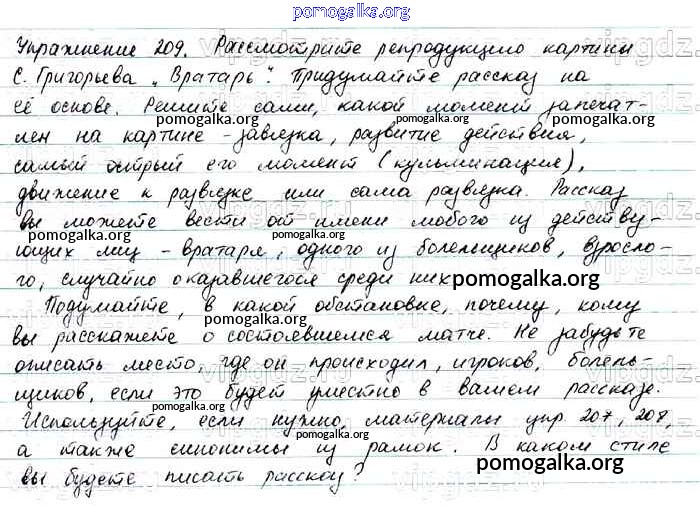 pomogalka.org
Упражнение 209. Рассмотрите репродукцию картины
С. Григорьева „Вратарь“. Придумайте рассказ на
pomogalka.org
её основе. Решите сами, какой момент запечат-
pomogalka.org pomogalka.org
лен на картине - завязка, развитие действия,
самый острый его момент (кульминация),
pomogalka.org
движение к развязке или сама развязка. Рассказ
вы можете вести от имени любого из действу-
pomogalka.org pomogalka.org
ющих лиц - вратаря, одного из болельщиков, взросло-
го, случайно оказавшегося среди них.
pomogalka.org
Подумайте, в какой обстановке, почему, кому
pomogalka.org
вы расскажете о состоявшемся матче. Не забудьте
описать место, где он происходил, игроков, болель-
щиков, если это будет уместно в вашем рассказе.
pomogalka.org
Используйте, если нужно, материалы упр. 207, 208,
pomogalka.org
а также синонимы из рамок. В каком стиле
pomogalka.org
вы будете писать рассказ?